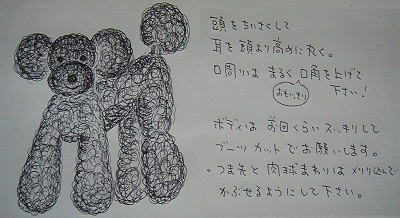 頭をちいさくして
耳を頭より高めに丸く。
口周りは まるく口角を上げて
おもいっきり
下さい!
ボディは前回くらいスッキリして
ブーツカットでお願いします。
。つま先と肉球まわりはメリり込んで
かぶせるようにして下さい。